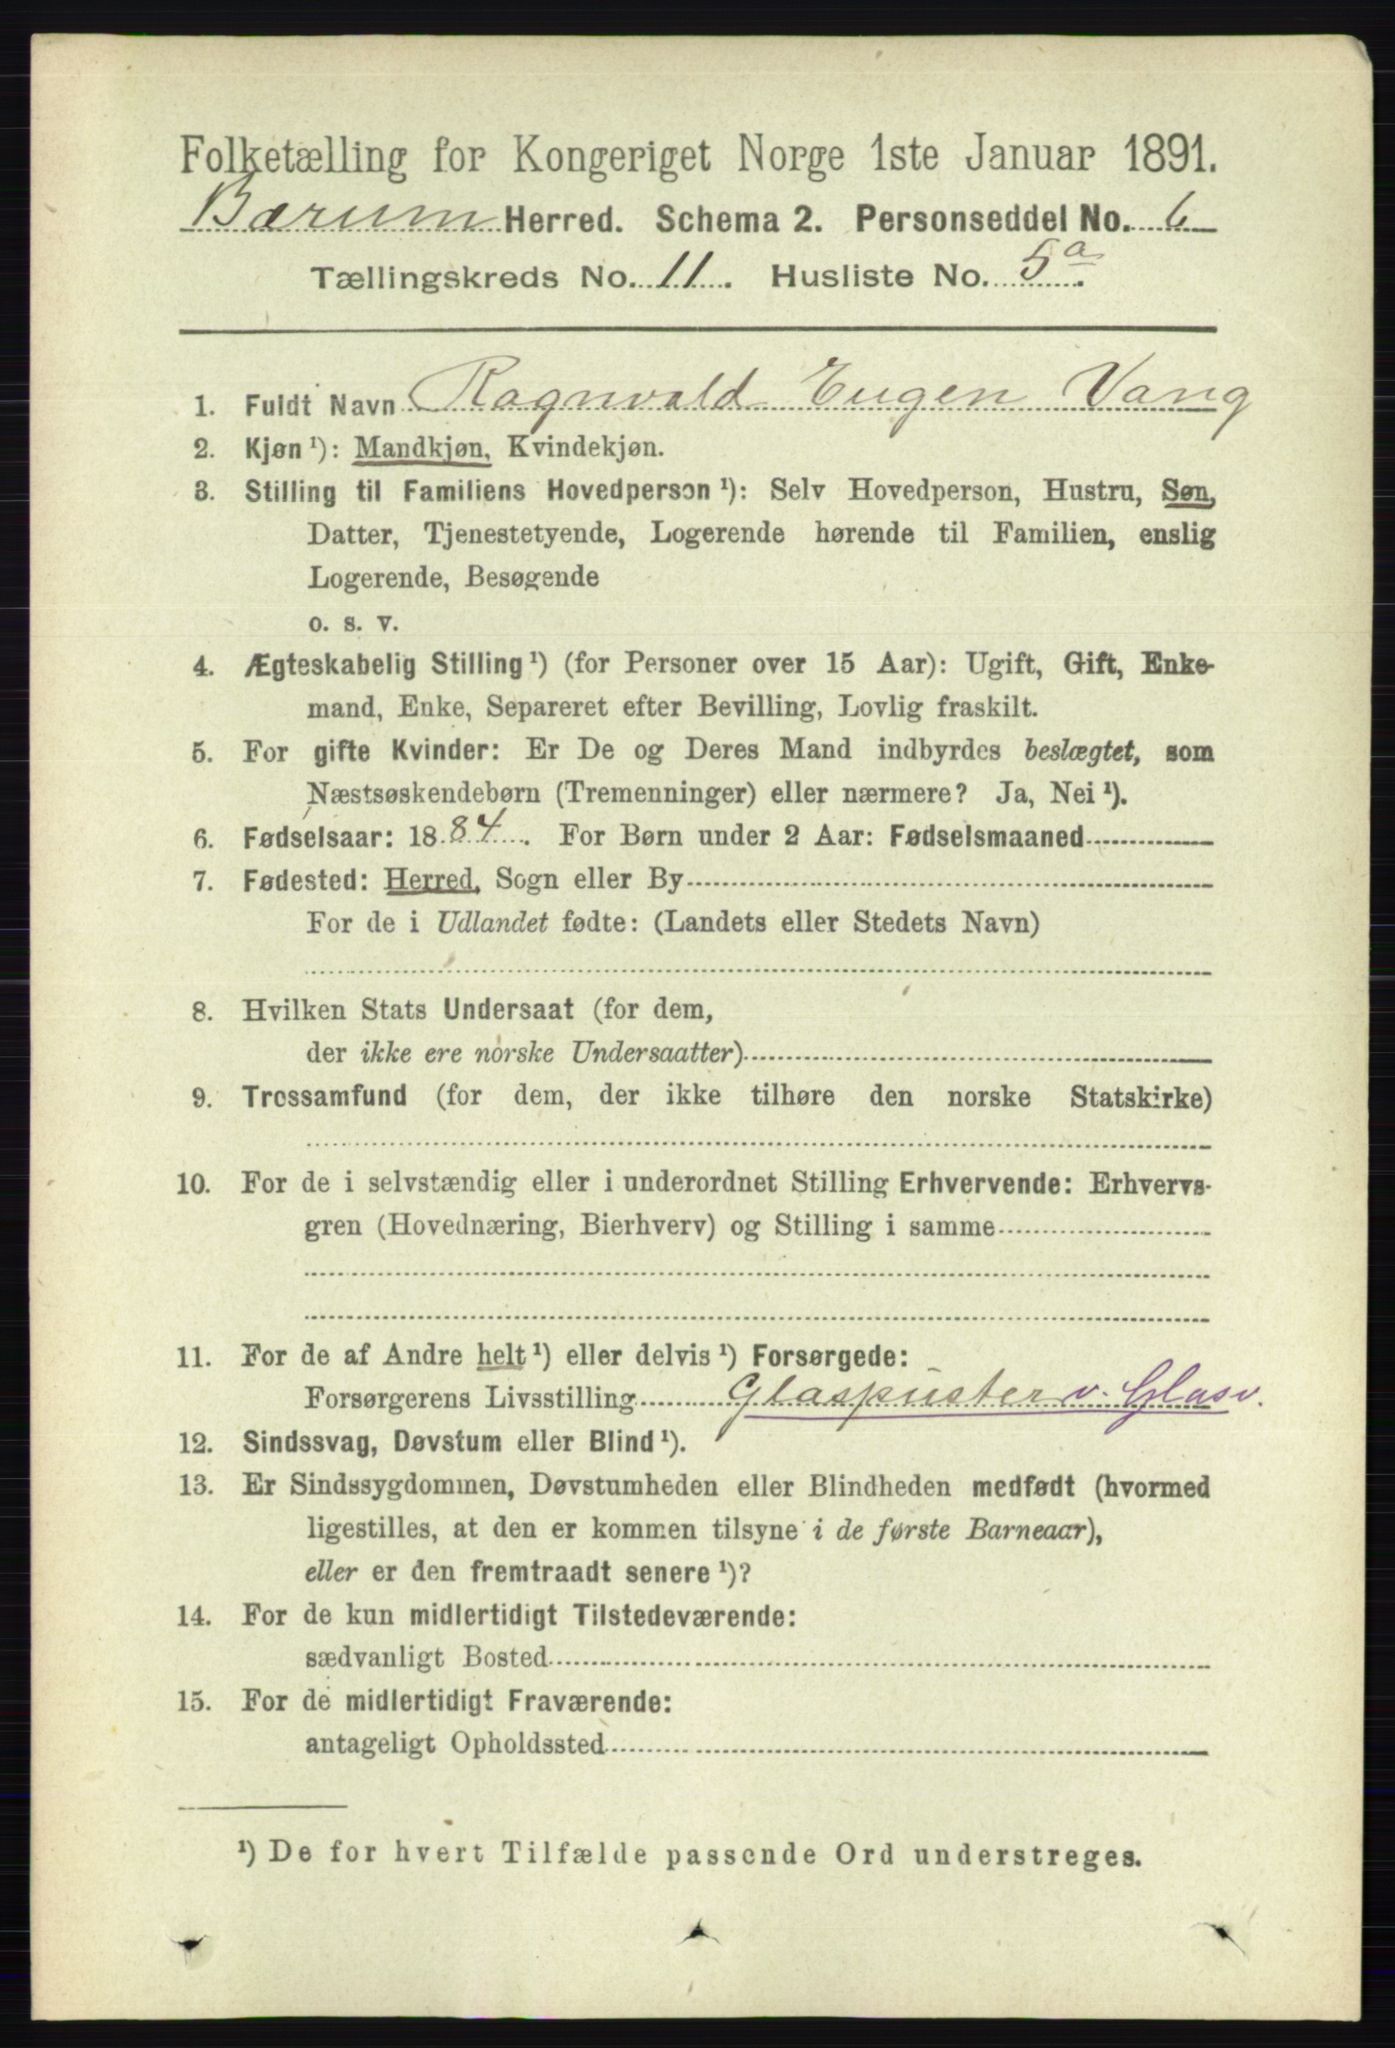 Folketælling for Kongeriget Norge 1ste Januar 1891.
Bærum Herred. Schema 2. Personseddel No. 6
Tællingskreds No. 11. Husliste No. 5a.
1. Fuldt Navn Ragnvald Eugen Vang
2. Kjøn¹): Mandkjøn, Kvindekjøn.
3. Stilling til Familiens Hovedperson¹): Selv Hovedperson, Hustru, Søn,
Datter, Tjenestetyende, Logerende hørende til Familien, enslig
Logerende, Besøgende
o. s. v.
4. Ægteskabelig Stilling¹) (for Personer over 15 Aar): Ugift, Gift, Enke-
mand, Enke, Separeret efter Bevilling, Lovlig fraskilt.
5. For gifte Kvinder: Er De og Deres Mand indbyrdes beslægtet, som
Næstsøskendebørn (Tremenninger) eller nærmere? Ja, Nei¹).
6. Fødselsaar: 1884. For Børn under 2 Aar: Fødselsmaaned
7. Fødested: Herred, Sogn eller By
For de i Udlandet fødte: (Landets eller Stedets Navn)
8. Hvilken Stats Undersaat (for dem,
der ikke ere norske Undersaatter)
9. Trossamfund (for dem, der ikke tilhøre den norske Statskirke)
10. For de i selvstændig eller i underordnet Stilling Erhvervende: Erhvervs-
gren (Hovednæring, Bierhverv) og Stilling i samme
11. For de af Andre helt¹) eller delvis¹) Forsørgede:
Forsørgerens Livsstilling Glaspuster v. Glasv.
12. Sindssvag, Døvstum eller Blind¹).
13. Er Sindssygdommen, Døvstumheden eller Blindheden medfødt (hvormed
ligestilles, at den er kommen tilsyne i de første Barneaar),
eller er den fremtraadt senere¹)?
14. For de kun midlertidigt Tilstedeværende:
sædvanligt Bosted
15. For de midlertidigt Fraværende:
antageligt Opholdssted
¹) De for hvert Tilfælde passende Ord understreges.